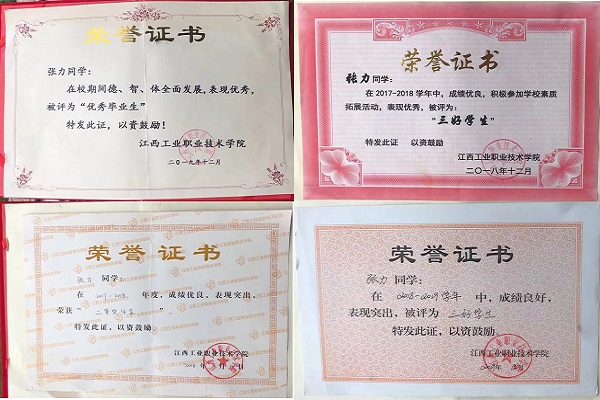 荣誉证书
张力同学：
在校期间德、智、体全面发展，表现优秀，
被评为“优秀毕业生”
特发此证，以资鼓励！
江西工业职业技术学院
二〇一九年十二月
荣誉证书
张力同学：
在2017-2018学年中，成绩优良，积极参加学校素质
拓展活动，表现优秀，被评为：
“三好学生”
特发此证 以资鼓励
江西工业职业技术学院
二〇一八年十二月
荣誉证书
张力 同学：
在 2017-2018 年度，成绩优良，表现突出，
荣获“ ”
特发此证，以资鼓励。
江西工业职业技术学院
荣誉证书
张力 同学：
在 2018-2019学年 中，成绩良好，
表现突出，被评为 三好学生
特发此证，以资鼓励。
江西工业职业技术学院